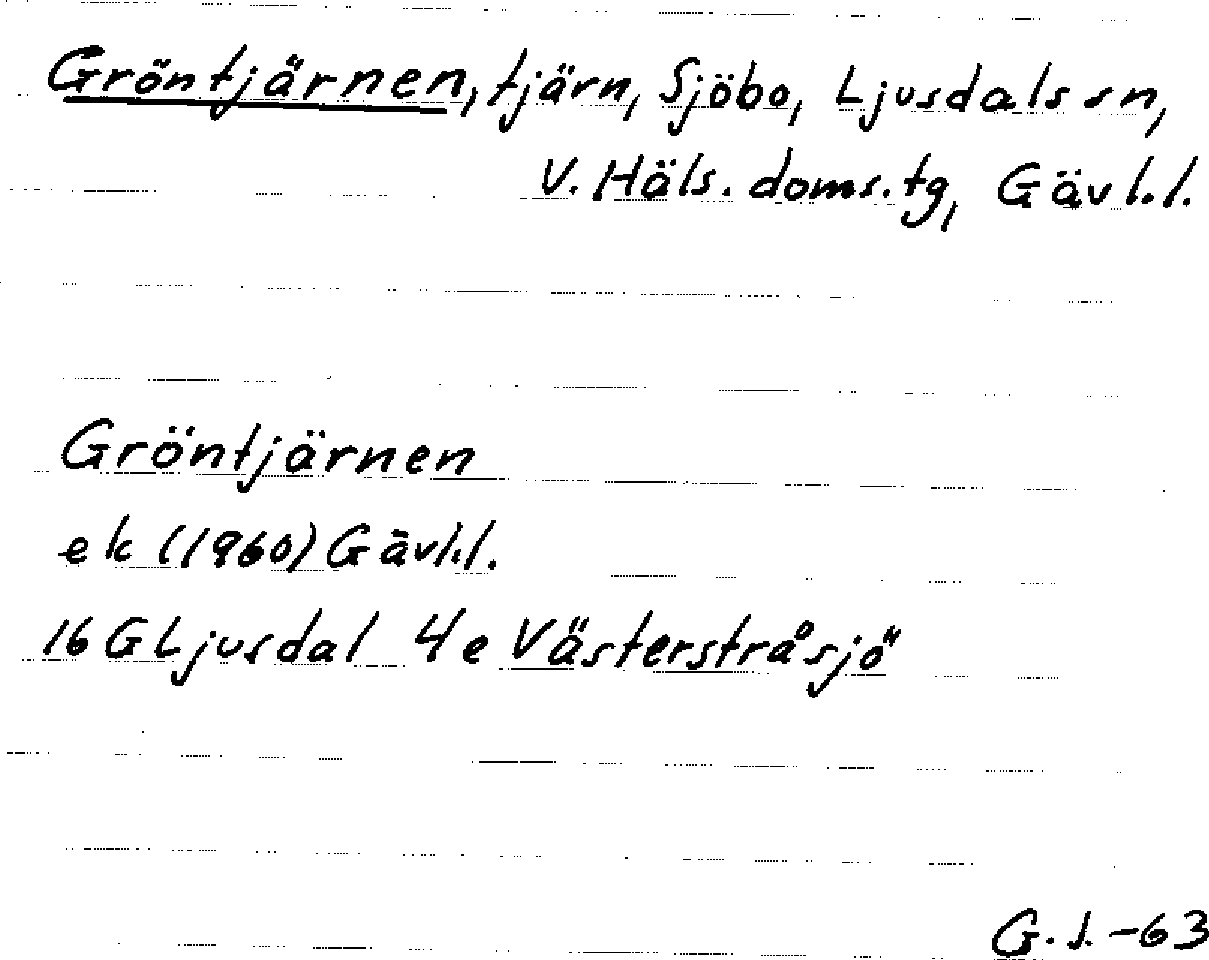 Gröntjärnen, tjärn, Sjöbo, Ljusdals sn,
V. Häls. doms.tg, Gävl.l.
Gröntjärnen
ek (1960) Gävl.l.
16 G Ljusdal 4e Västerstråsjö
G.J. -63